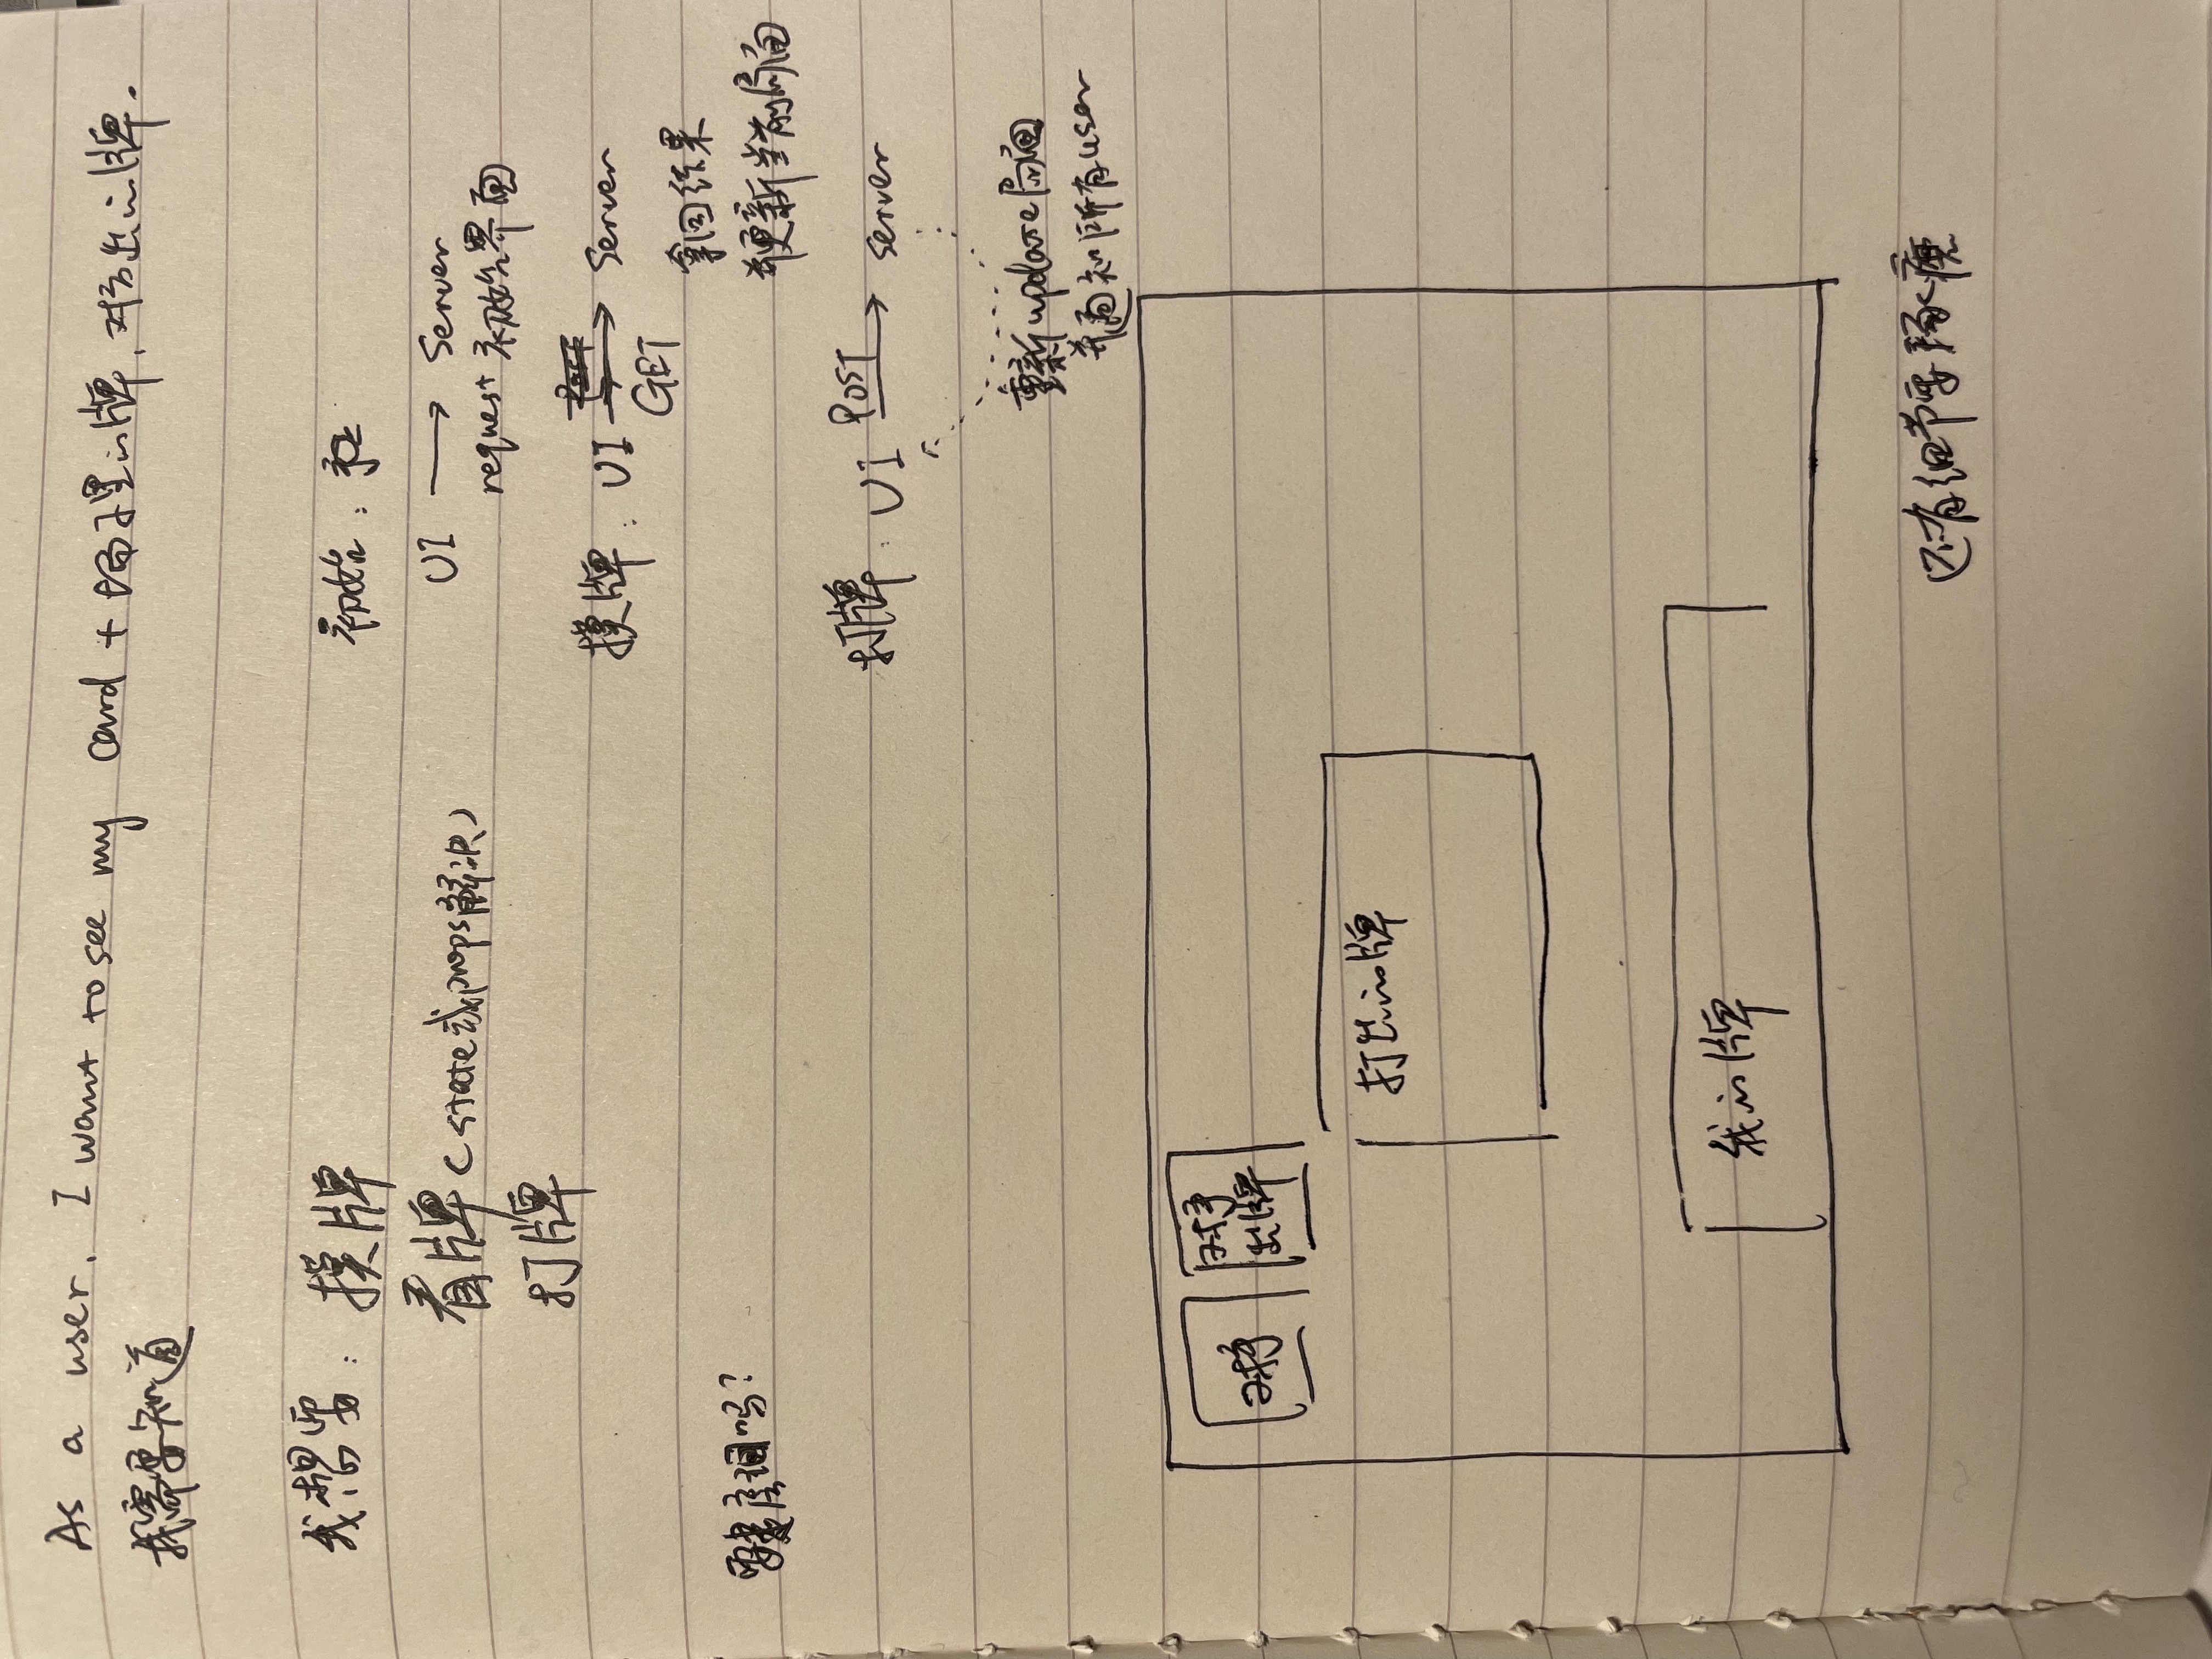 As a user, I want to see my card + 场子里的牌, 对方出的牌.
我需要知道
我想要: 摸牌
看牌 (state或props解决)
打牌
要建房间吗?
初始:
UI → Server
request 初始界面
摸牌: UI → Server
GET
拿回结果
并更新当前局面
打牌: UI POST → server
重新update局面
并通知所有user
对手
对手
出牌
打出的牌
我的牌
还有细节要琢磨